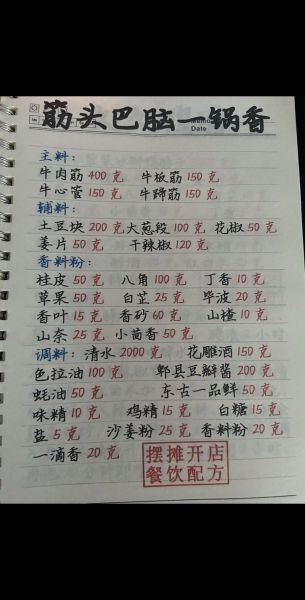 筋头巴脑一锅香
Date
主料：
牛肉筋 400 克 牛板筋 150 克
牛心管 150 克 牛蹄筋 150 克
辅料：
土豆块 200 克 大葱段 100 克 花椒 50 克
姜片 50 克 干辣椒 120 克
香料粉：
桂皮 50 克 八角 100 克 丁香 10 克
草果 50 克 白芷 25 克 毕波 20 克
香叶 15 克 香砂 60 克 山楂 10 克
山奈 25 克 小茴香 50 克
调料：清水 2000 克 花雕酒 150 克
色拉油 100 克 郫县豆瓣酱 200 克
蚝油 50 克 东古一品鲜 50 克
味精 10 克 鸡精 15 克 白糖 15 克
盐 5 克 沙姜粉 25 克 香料粉 20 克
一滴香 20 克
摆摊开店
餐饮配方